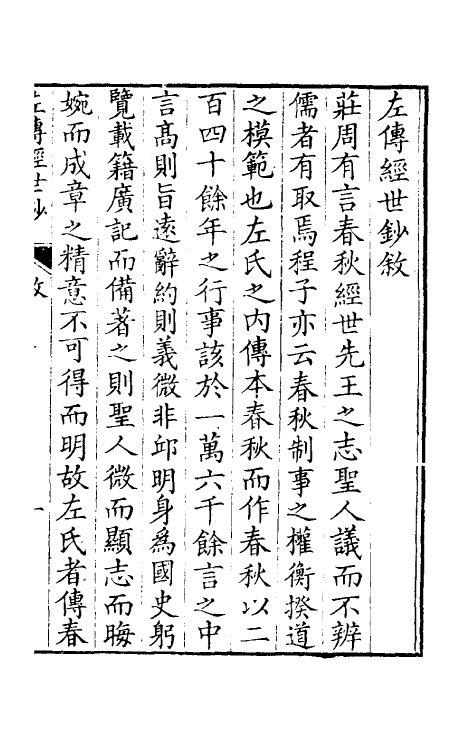 左傳經世鈔敘
莊周有言春秋經世先王之志聖人議而不辨
儒者有取焉程子亦云春秋制事之權衡揆道
之模範也左氏之内傳本春秋而作春秋以二
百四十餘年之行事該於一萬六千餘言之中
言高則旨遠辭約則義微非邱明身爲國史躬
覽載籍廣記而備著之則聖人微而顯志而晦
婉而成章之精意不可得而明故左氏者傳春
左傳經世鈔 敘 一